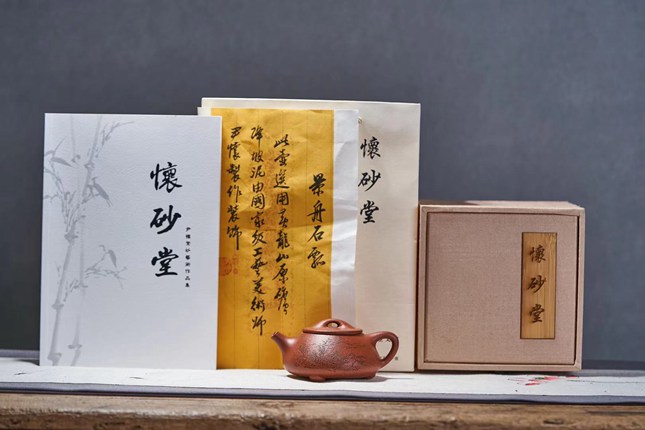 懷砂堂
景舟石瓢
此壺選用黃龍山原礦
降坡泥由國家級工藝美術師
尹懷製作裝飾
懷砂堂
懷砂堂